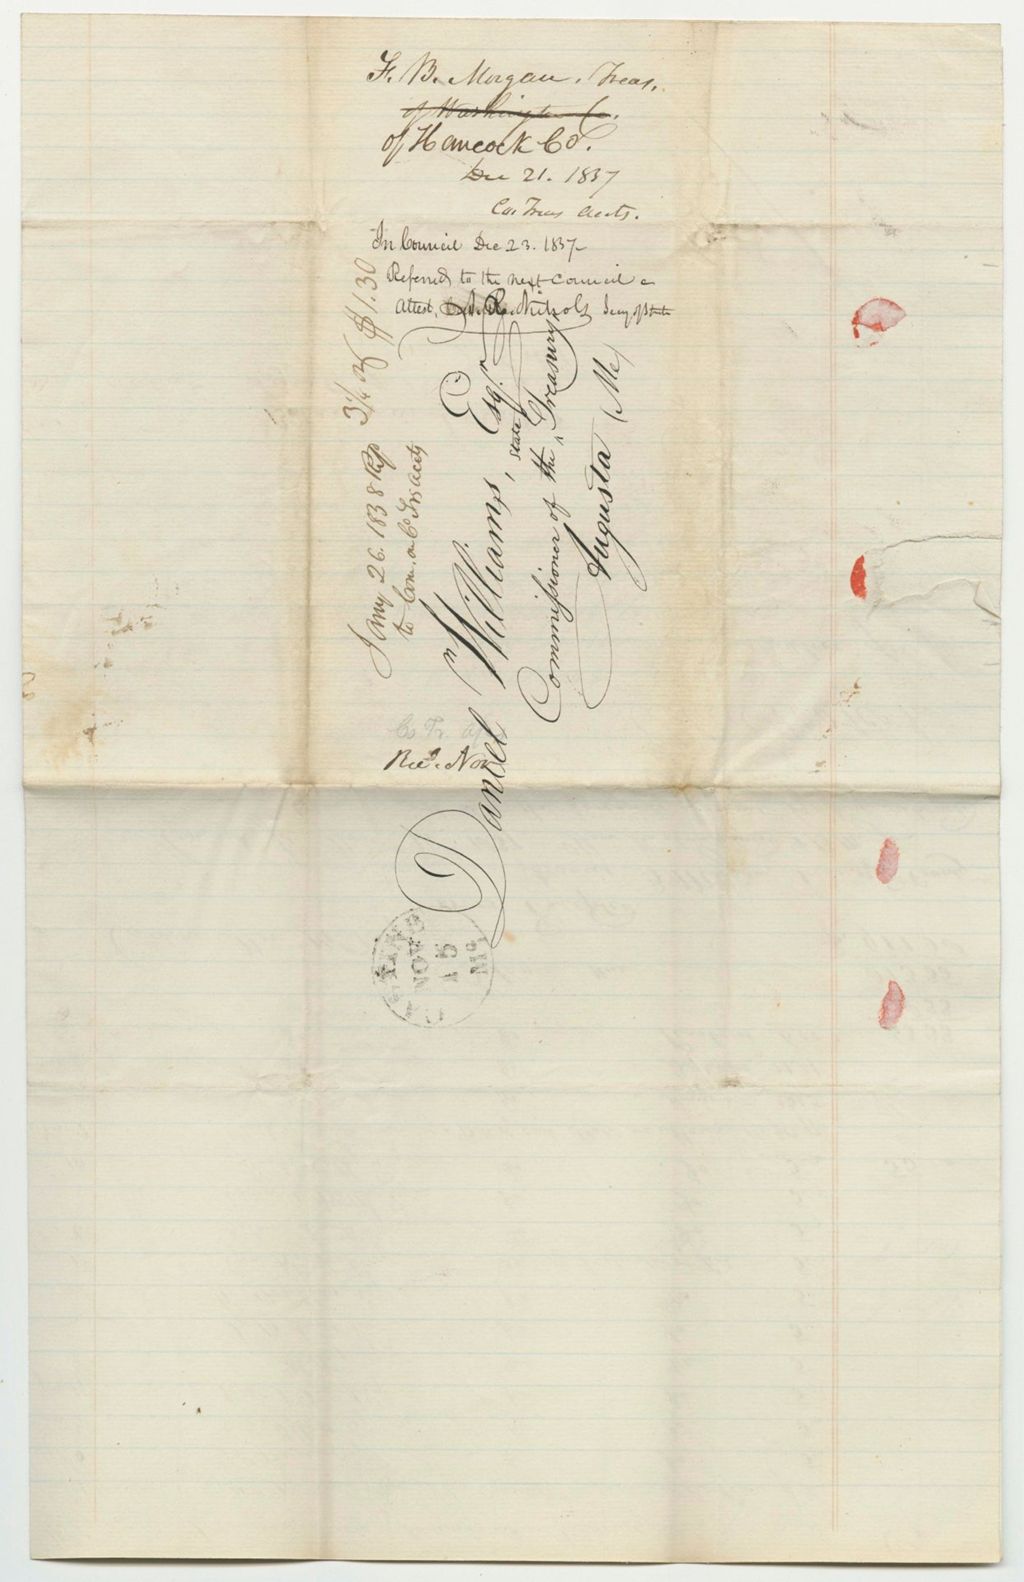 F. B. Morgan. Treas.
of Washington Co.
of Hancock Co.
Dec 21. 1837
Co. Treas accts.
In Council Dec 23. 1837
Referred to the next Council
Attest, Nichols Secy of State
$1.30
3¼ oz
Jany 26. 1838 Rep
to Com. on Co Trs accts
Daniel Williams, Esqr
Commissioner of the state Treasury
Augusta (Me)
Co Tr
Recd. Nov
NOV
15
Me